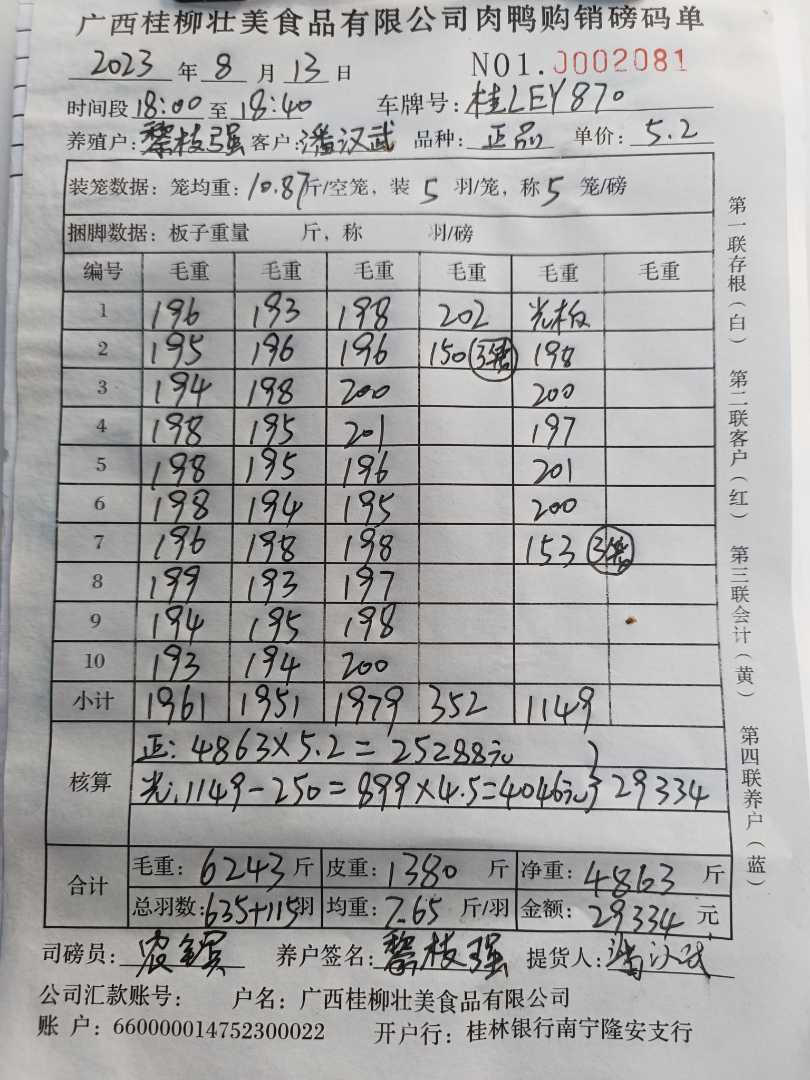 广西桂柳壮美食品有限公司肉鸭购销磅码单
2023 年 8 月 13 日 NO1. 0002081
时间段 18:00 至 18:40 车牌号: 桂LEY870
养殖户: 黎枝强 客户: 潘汉武 品种: 正品 单价: 5.2
装笼数据: 笼均重: 10.87斤/空笼, 装 5 羽/笼, 称 5 笼/磅
捆脚数据: 板子重量 斤, 称 羽/磅
编号 毛重 毛重 毛重 毛重 毛重 毛重
1 196 193 198 202 光板
2 195 196 196 150 198
3 194 198 200 200
4 198 195 201 197
5 198 195 196 201
6 198 194 195 200
7 196 198 198 153
8 199 193 197
9 194 195 198
10 193 194 200
小计 1961 1951 1979 352 1149
核算 正: 4863×5.2=25288元
光: 1149-250=899×4.5=4046元} 29334
合计 毛重: 6243 斤 皮重: 1380 斤 净重: 4863 斤
总羽数: 635+115羽 均重: 7.65 斤/羽 金额: 29334 元
司磅员: 养户签名: 黎枝强 提货人: 潘汉武
公司汇款账号: 户名: 广西桂柳壮美食品有限公司
账 户: 660000014752300022 开户行: 桂林银行南宁隆安支行
第一联存根(白) 第二联客户(红) 第三联会计(黄) 第四联养户(蓝)